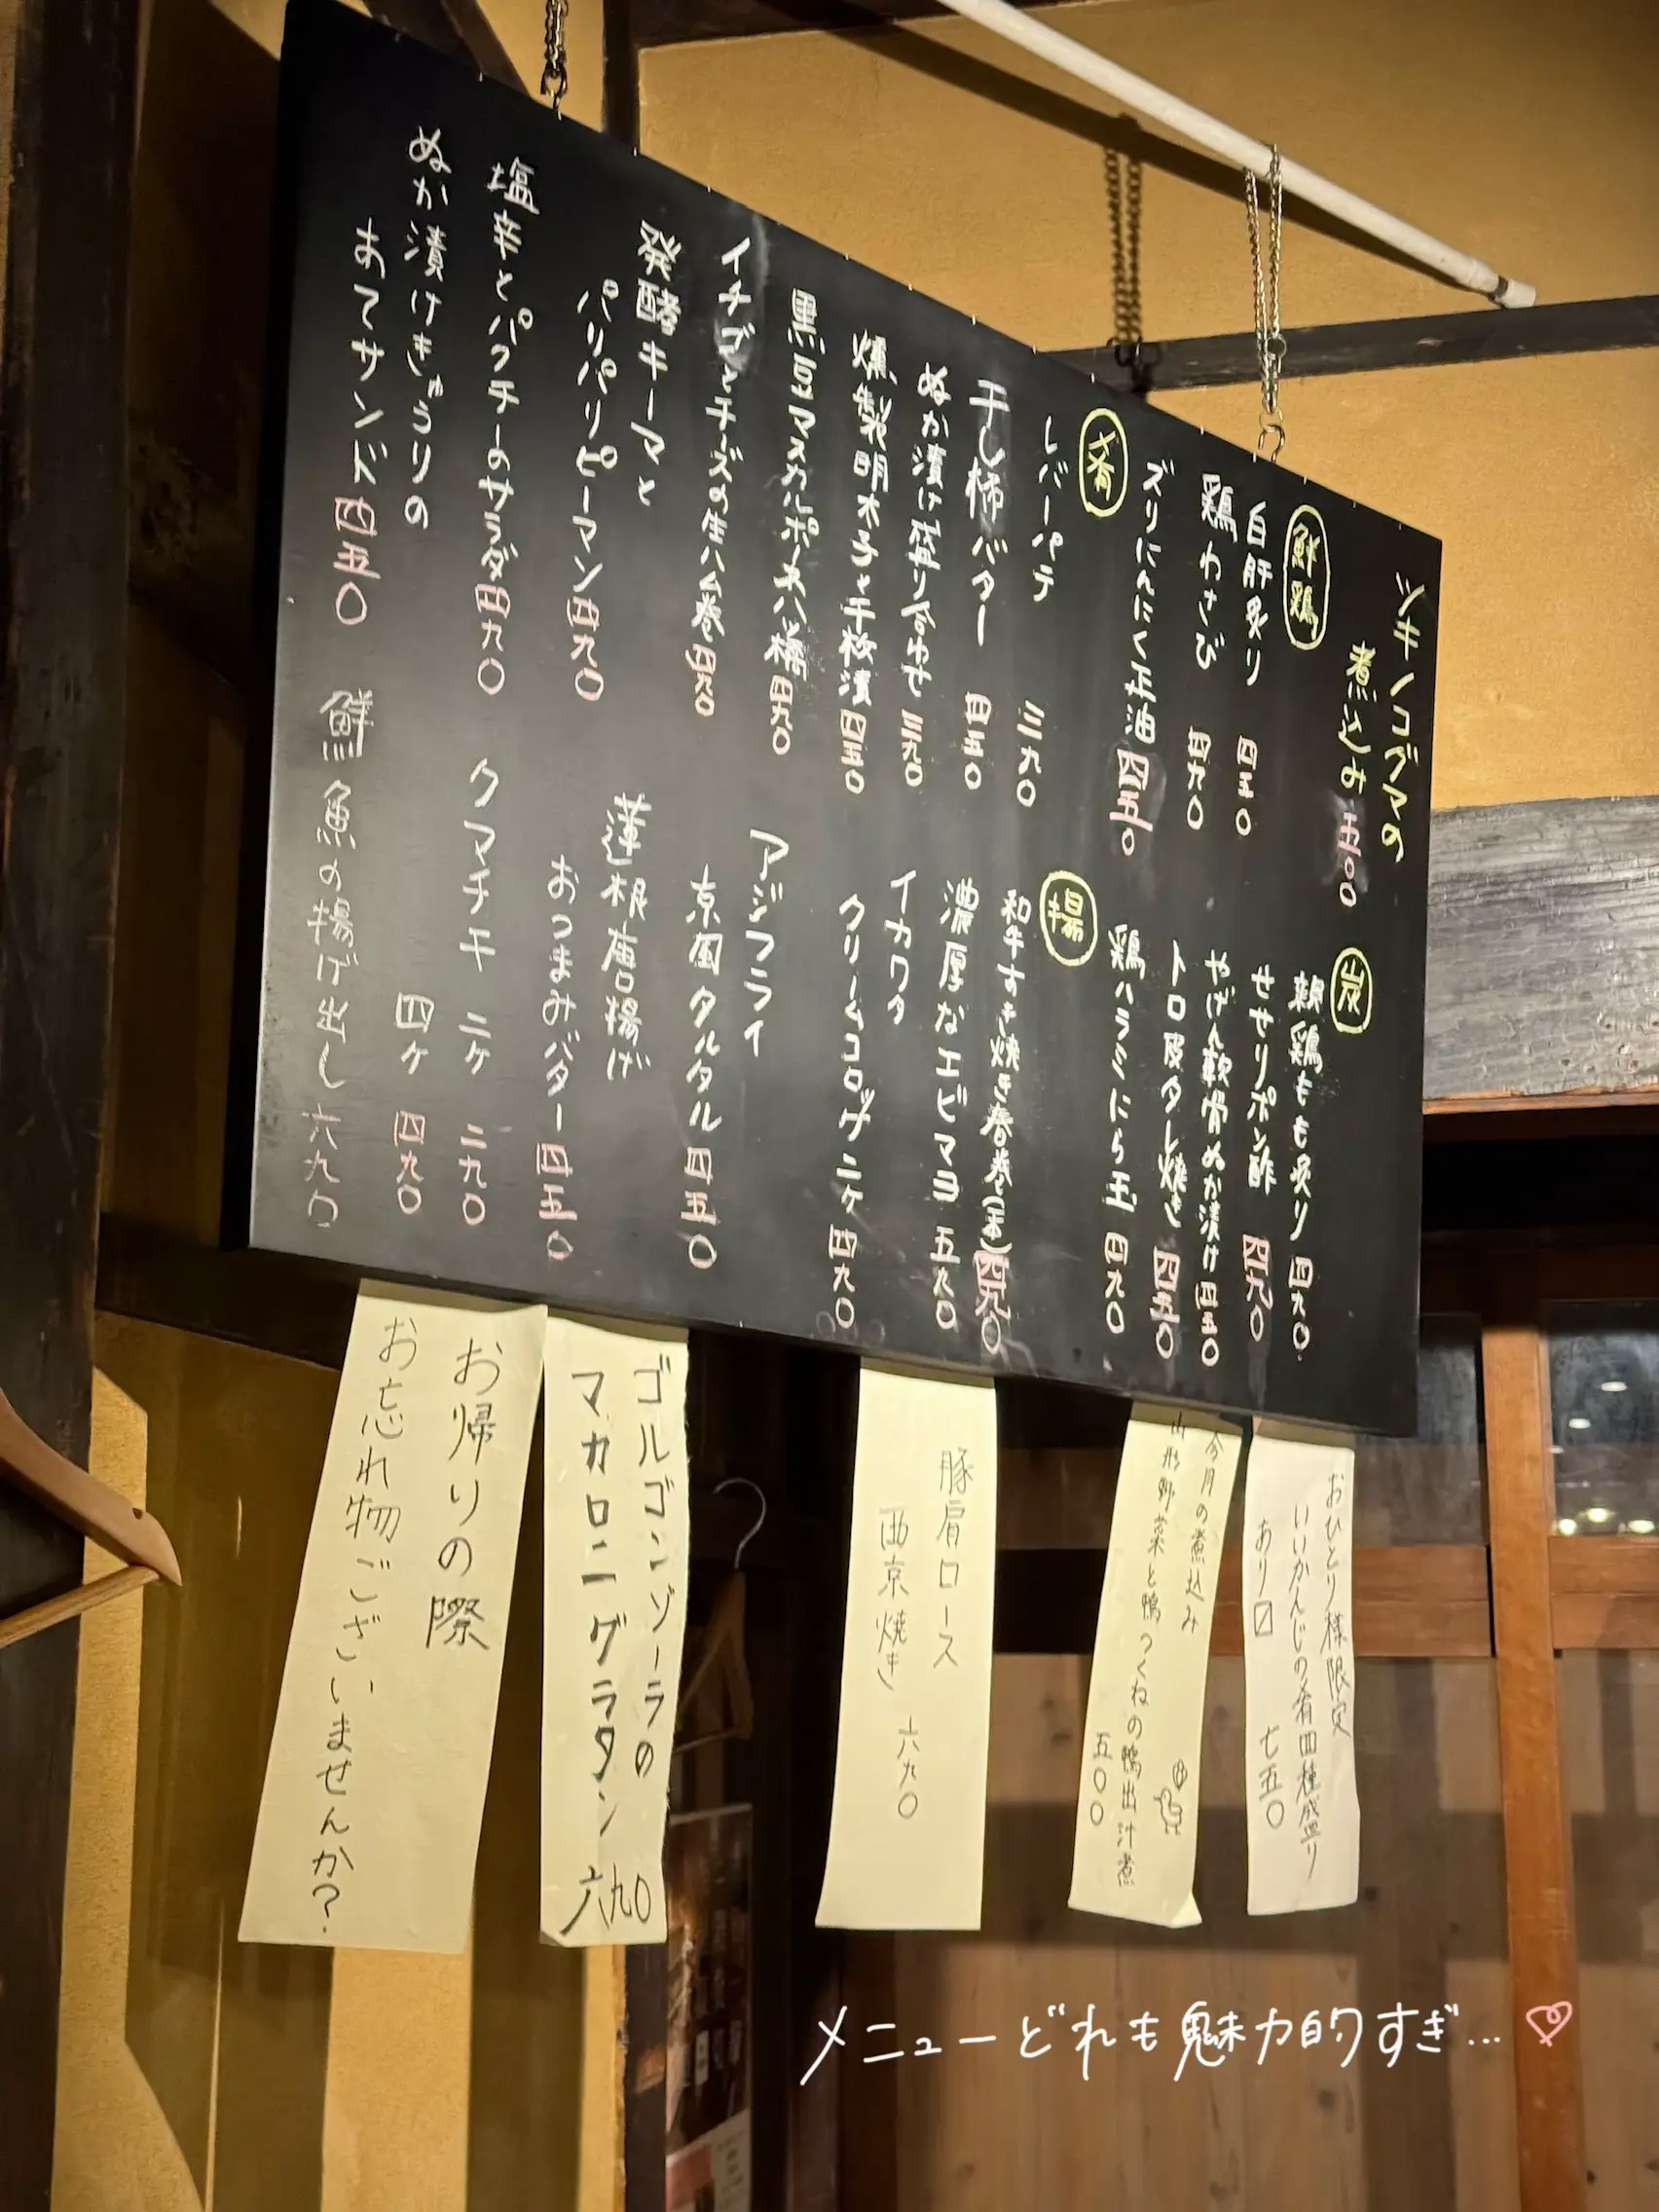 ツキノコグマの
煮込み 五〇〇
鮮鶏
白肝炙り 四五〇
鶏わさび 四九〇
ズリにんにく正油 四五〇
肴
レバーパテ 三九〇
干し柿バター 四五〇
ぬか漬け盛り合わせ 三九〇
燻製明太子と千枚漬 四五〇
黒豆マスカルポーネ八ツ橋 四九〇
イチゴとチーズの生ハム巻 四九〇
発酵キーマと
パリパリピーマン 四九〇
塩辛とパクチーのサラダ 四九〇
ぬか漬けきゅうりの
あてサンド 四五〇
炭
親鶏もも炙り 四九〇
せせりポン酢 四九〇
やげん軟骨ぬか漬け 四五〇
トロ皮タレ焼き 四五〇
鶏ハラミにら玉 四九〇
揚
和牛すき焼き春巻(一本) 四九〇
濃厚なエビマヨ 五九〇
イカワタ
クリームコロッケ 二ケ 四九〇
アジフライ
京風タルタル 四五〇
蓮根唐揚げ
おつまみバター 四五〇
クマチキ 二ケ 二九〇
四ケ 四九〇
鮮魚の揚げ出し 六九〇
おひとり様限定
いいかんじの肴四種盛り
あり〼 七五〇
今月の煮込み
山形野菜と鴨つくねの鴨出汁煮
五〇〇
豚肩ロース
西京焼き 六九〇
ゴルゴンゾーラの
マカロニグラタン 六九〇
お帰りの際
お忘れ物ございませんか?
メニューどれも魅力的すぎ...♡